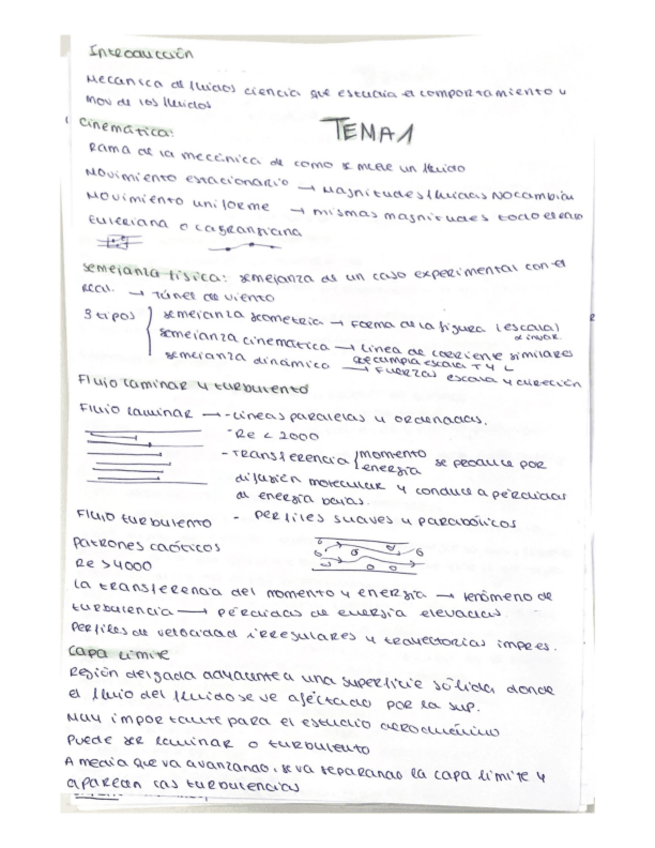 Introducción
Mecánica de fluidos ciencia que estudia el comportamiento y
mov de los fluidos
Cinemática:
TEMA 1
Rama de la meccínica de como se mueve un fluido
Movimiento estacionario → Magnitudes fluidas NO cambian
Movimiento uniforme → mismas magnitudes todo
Euleriana o Lagrangiana
Semejanza física: semejanza de un caso experimental con el
real. → Túnel de viento
3 tipos
semejanza geometría → Forma de la figura (escala)
semejanza cinemática → Línea de corriente similares
que cumpla escala T y L
semejanza dinámico → Fuerzas escala y dirección
Flujo laminar y turbulento
Flujo laminar → - Líneas paralelas y ordenadas.
- Re < 2000
- Transferencia momento energía se produce por
difusión molecular y conduce a pérdidas
de energía bajas.
Flujo turbulento - Perfiles suaves y parabólicos
Patrones caóticos
Re > 4000
La transferencia del momento y energía → fenómeno de
turbulencia → pérdidas de energía elevadas.
Perfiles de velocidad irregulares y trayectorias impres.
Capa límite
Región delgada adyacente a una superficie sólida donde
el flujo del fluido se ve afectado por la sup.
Muy importante para el estudio aerodinámico
Puede ser laminar o turbulento
A media que va avanzando, se va separando la capa límite y
aparecen las turbulencias